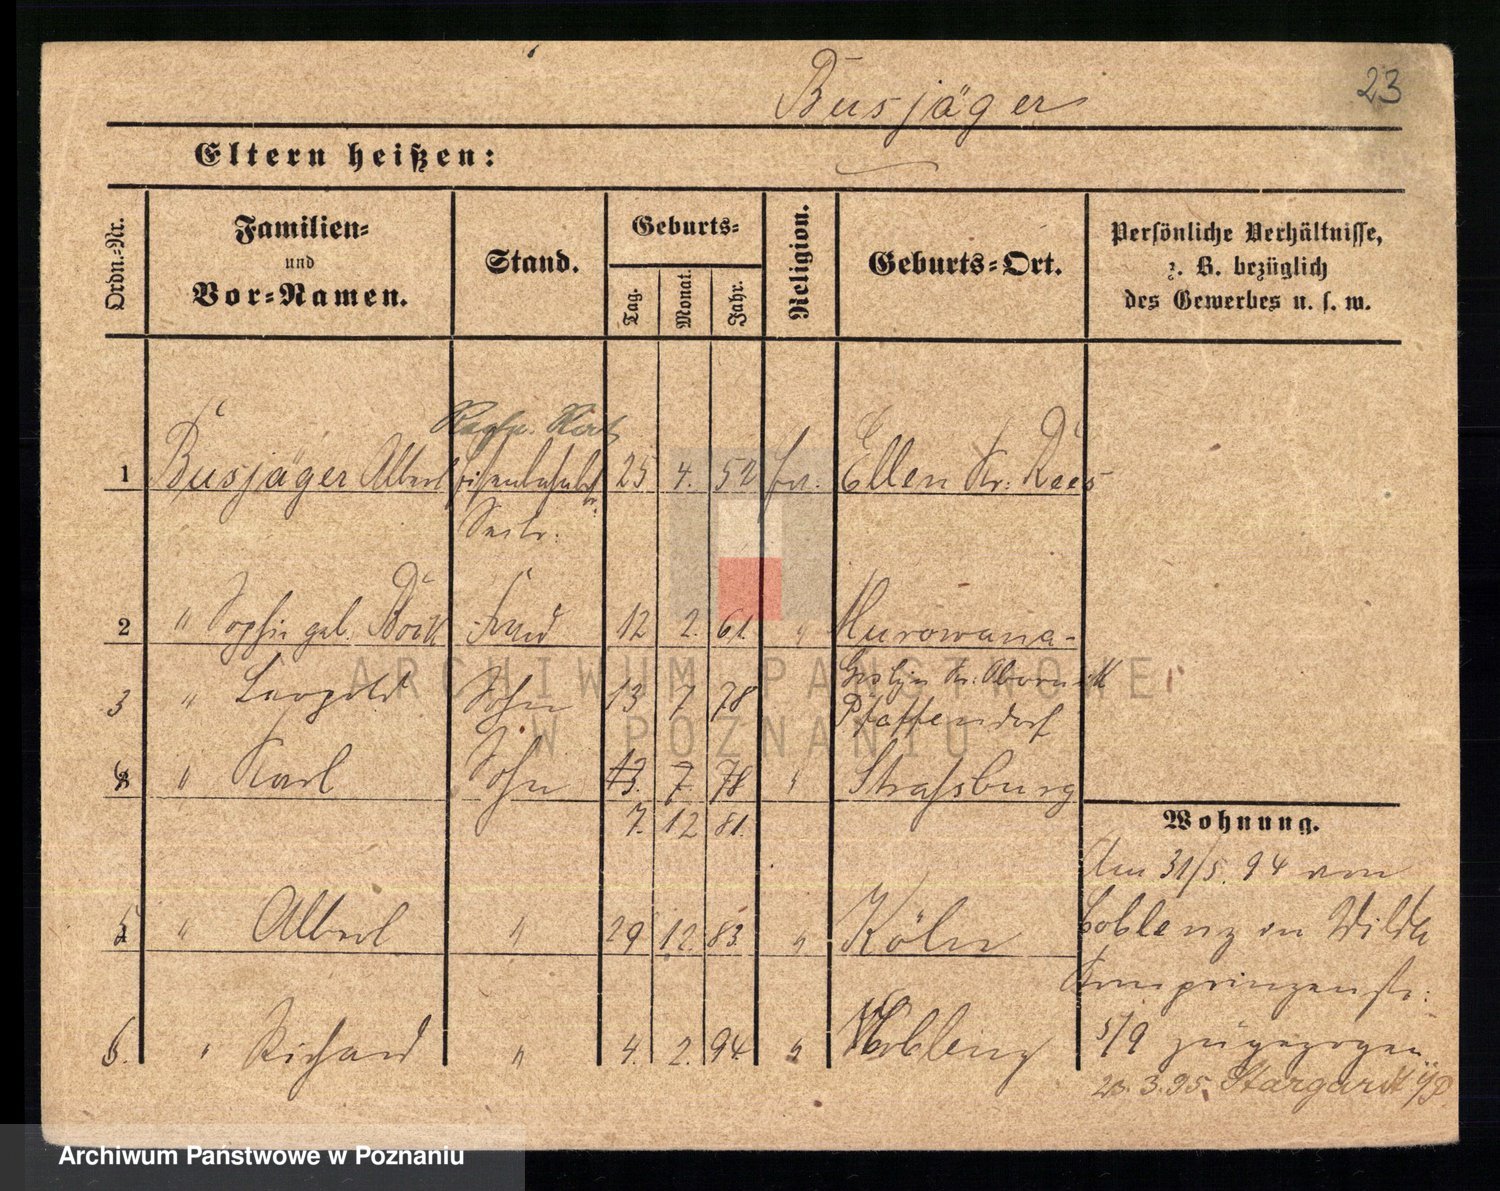 Busjäger
23
Eltern heißen:
Ordn.-Nr.
Familien-
und
Vor-Namen.
Stand.
Geburts-
Tag.
Monat.
Jahr.
Religion.
Geburts-Ort.
Persönliche Verhältnisse,
z. B. bezüglich
des Gewerbes u. s. w.
1 Busjäger Albert Eisenbahnb 25 4. 52 ev. Ellen Kr: Rees
Sectr.
2 " Sophie geb. Böck Frau 12 2. 61 " Murowana-
Goslin Kr. Obornik
3 " Leopold Sohn 13 7 78 Pfaffendorf
4 " Karl Sohn 13. 7. 78 " Strassburg
7. 12 81.
Wohnung.
Am 31/5. 94 von
Coblenz in Wilda
Kronprinzenstr:
5/9 zugezogen
5 " Albert " 29 12. 83 " Köln
6. " Richard " 4. 2. 94 " Coblenz
23. 3. 95. Stargardt i/P.
ARCHIWUM PAŃSTWOWE
W POZNANIU
Archiwum Państwowe w Poznaniu